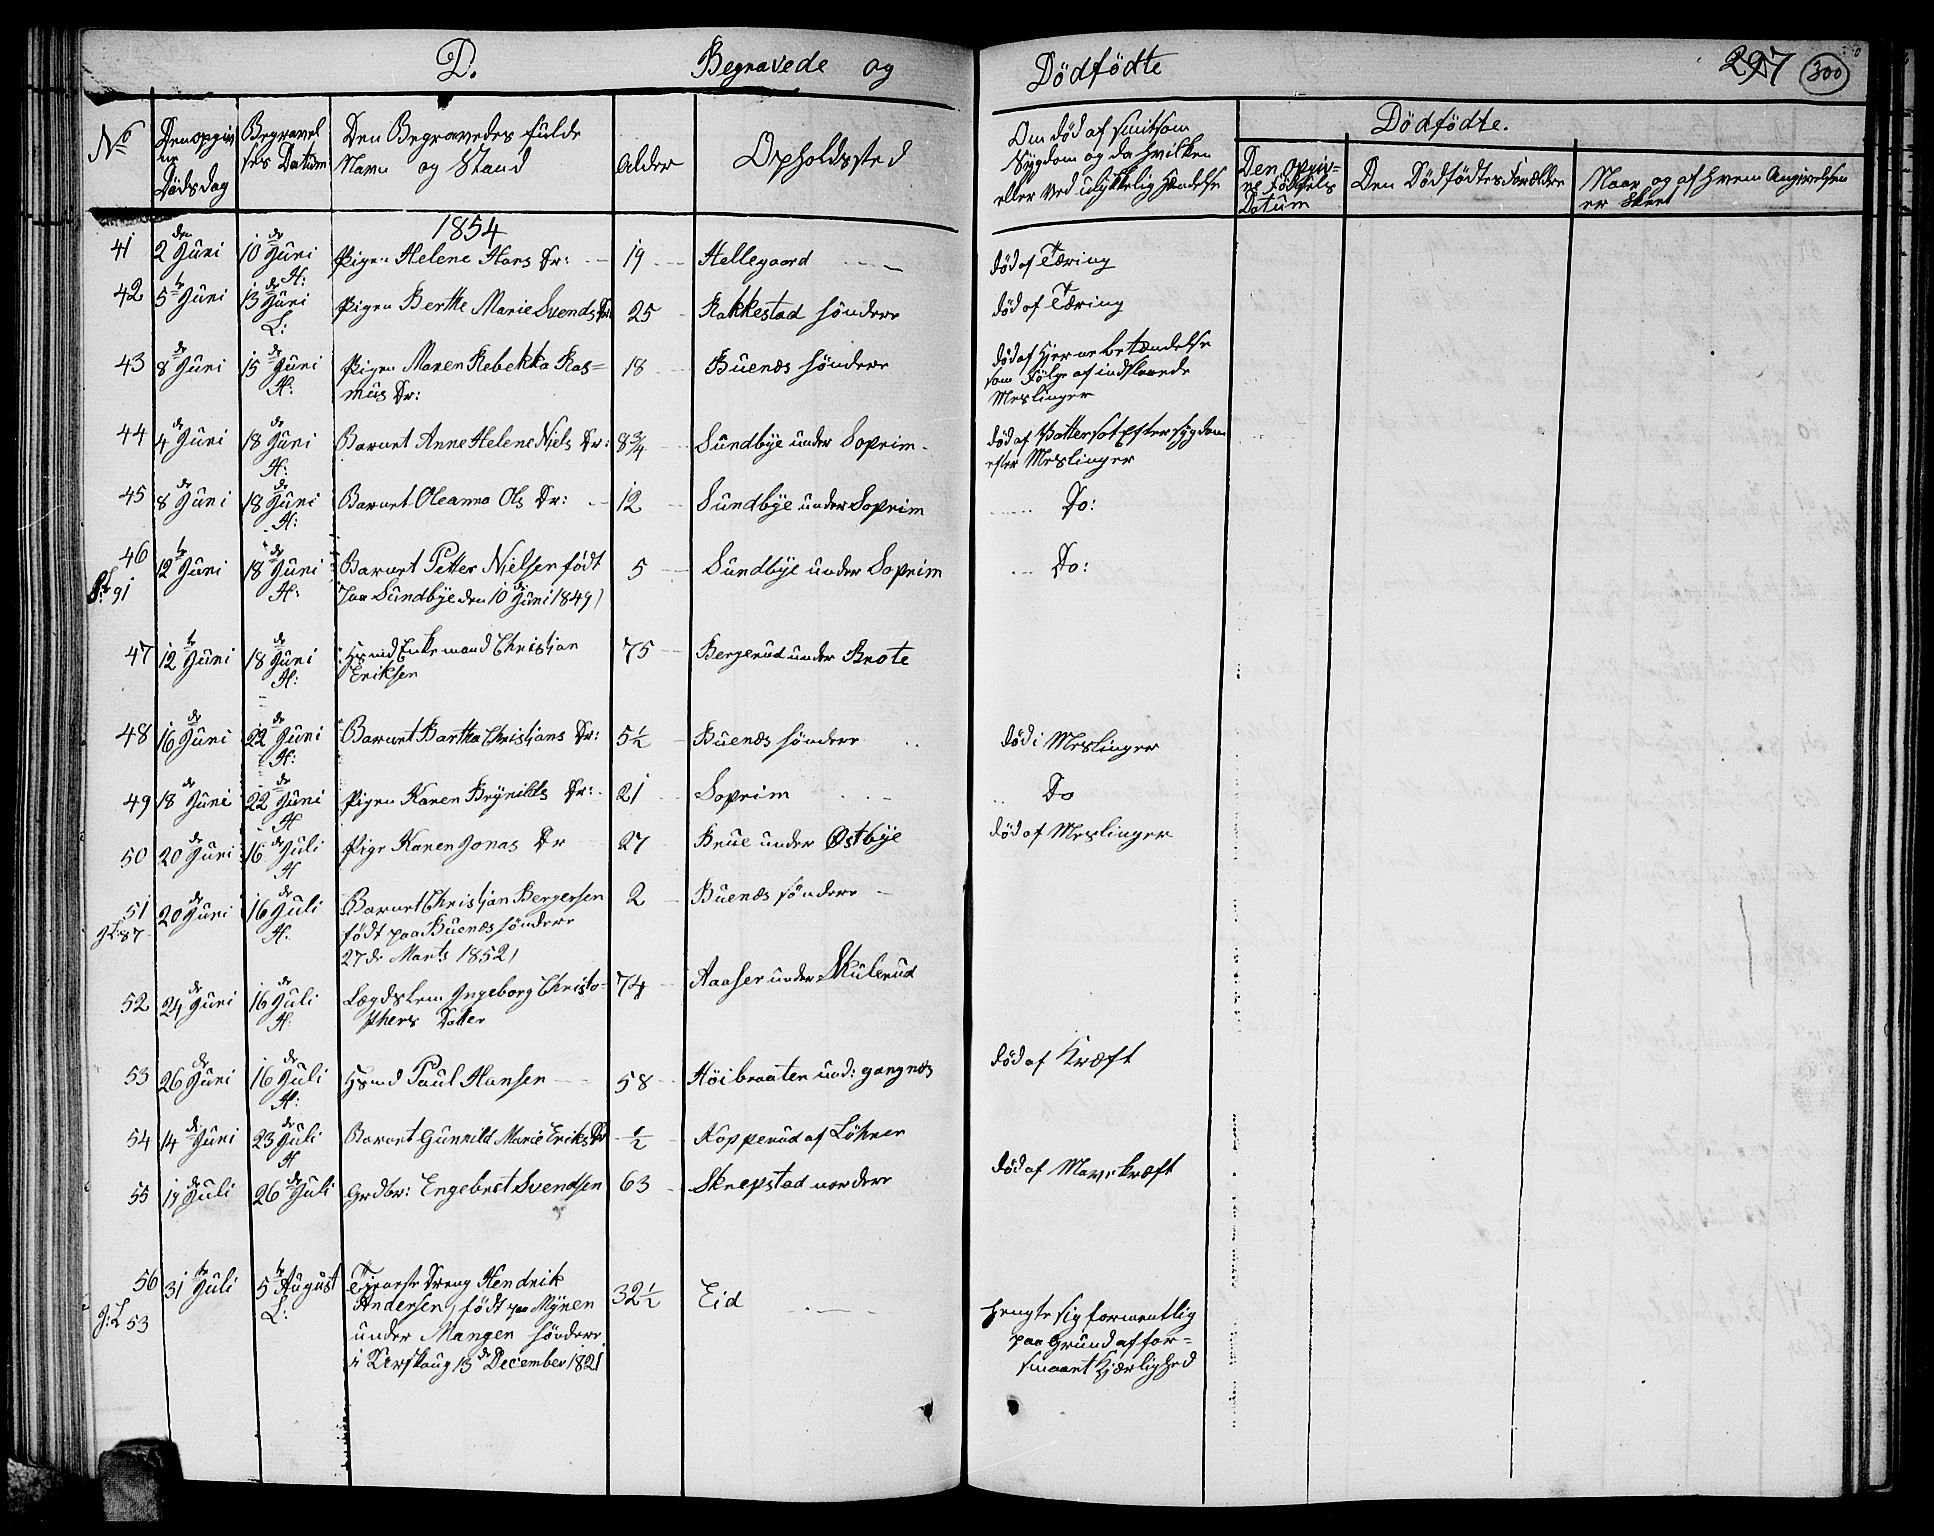 D. Begravede og Dödfödte 297 300
No Den opgivne Dödsdag Begravelses Datum Den Begravedes fulde Navn og Stand Alder Opholdsted Om död af smitsom Sygdom og da hvilken eller ved ulykkelig Hændelse Dödfödte.
Den opgivne Födsels Datum Den Dödfödtes Forældre Naar og af hvem Angivelsen er skeet
1854
41 2den Juni 10de Juni H: Pigen Helene Hans Dr: 19 Hellegaard död af Tæring
42 5te Juni 13de Juni L: Pigen Berthe Marie Svends Dr: 25 Rakkestad söndere död af Tæring
43 8de Juni 15de Juni H: Pigen Maren Rebekka Ras=
mus Dr: 18 Buenæs söndere död af Hjernebetændelse
som Fölge af indslaaede
Meslinger
44 4de Juni 18de Juni H: Barnet Anne Helene Niels Dr: 8 3/4 Sundbye under Soprim död af Vattersot Eftersygdom
efter Meslinger
45 8de Juni 18de Juni H: Barnet Oleanna Ols Dr: 12 Sundbye under Soprim Do:
46 12te Juni 18de Juni H: Barnet Petter Nielsen födt
paa Sundbye den 10de Juni 1849) 5 Sundbye under Soprim Do:
91
47 12te Juni 18de Juni H: Hsmd Enkemand Christian
Eriksen 75 Bergerud under Brote
48 16de Juni 22de Juni H: Barnet Bartha Christians Dr: 5 1/2 Buenæs söndere död i Meslinger
49 18de Juni 22de Juni H Pigen Karen Brynilds Dr: 21 Soprim Do
50 20de Juni 16de Juli H Pige Karen Jonas Dr 27 Brue under Østbye död af Meslinger
51 20de Juni 16de Juli H. Barnet Christian Bergersen
födt paa Buenæs söndere
27de Marts 1852) 2 Buenæs söndere
J:L 87
52 24de Juni 16de Juli H. Lægdslem Ingeborg Christo-
phers Datter 74 Aaaser under Skulerud
53 26de Juni 16de Juli H: Hsmd Paul Hansen 58 Höibraaten und: gangnæs död af Kræft
54 14de Juni 23de Juli H Barnet Gunnild Marie Eriks Dr 1/2 Kopperud af Löhren
55 19de Juli 26de Juli Grdbr: Engebret Svendsen 63 Skrepstad nordere död af Mavekræft
56 31te Juli 5te August L: Tjeneste Dreng Hendrik
Andersen, födt paa Mynen
under Mangen söndere
i Urskoug 13de December 1821 32 1/2 Eid Hengte sig formentlig
paa Grund af for-
smaaet Kjærlighed
J:L 53